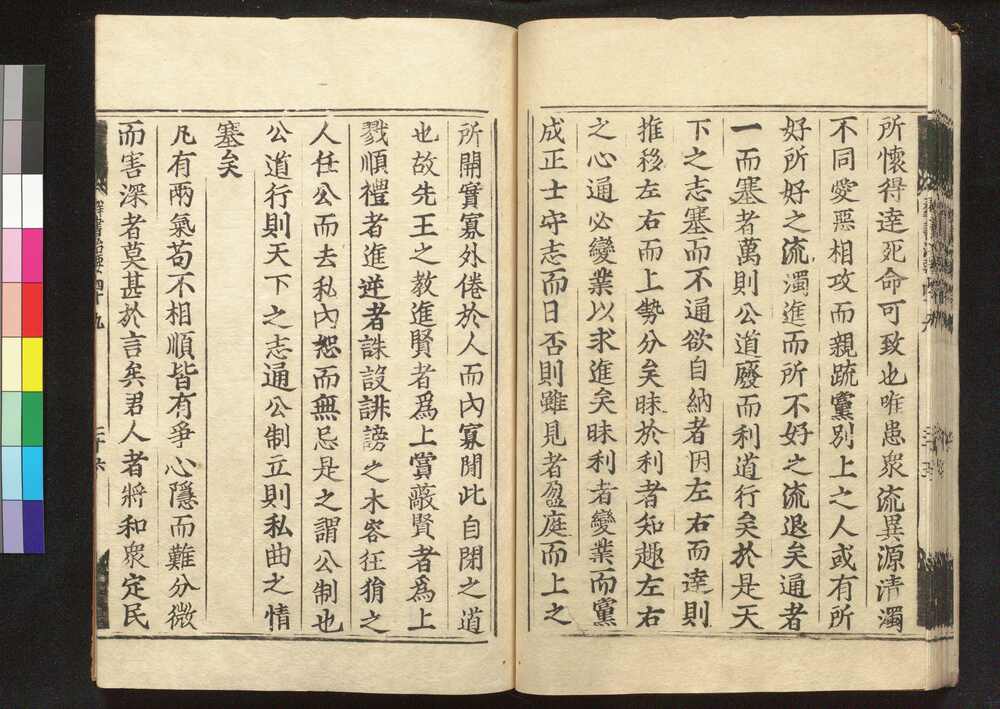 所懷得達死命可致也唯患衆流異源清濁
不同愛惡相攻而親疏黨別上之人或有所
好所好之流濁進而所不好之流退矣通者
一而塞者萬則公道廢而利道行矣於是天
下之志塞而不通欲自納者因左右而達則
推移左右而上勢分矣昧於利者知趣左右
之心通必變業以求進矣昧利者變業而黨
成正士守志而日否則雖見者盈庭而上之
所聞實寡外倦於人而內寡聞此自閉之道
也故先王之教進賢者爲上賞蔽賢者爲上
戮順禮者進逆者誅設誹謗之木容狂狷之
人任公而去私內恕而無忌是之謂公制也
公道行則天下之志通公制立則私曲之情
塞矣
凡有兩氣苟不相順皆有爭心隱而難分微
而害深者莫甚於言矣君人者將和衆定民
群書治要四十九
二十六